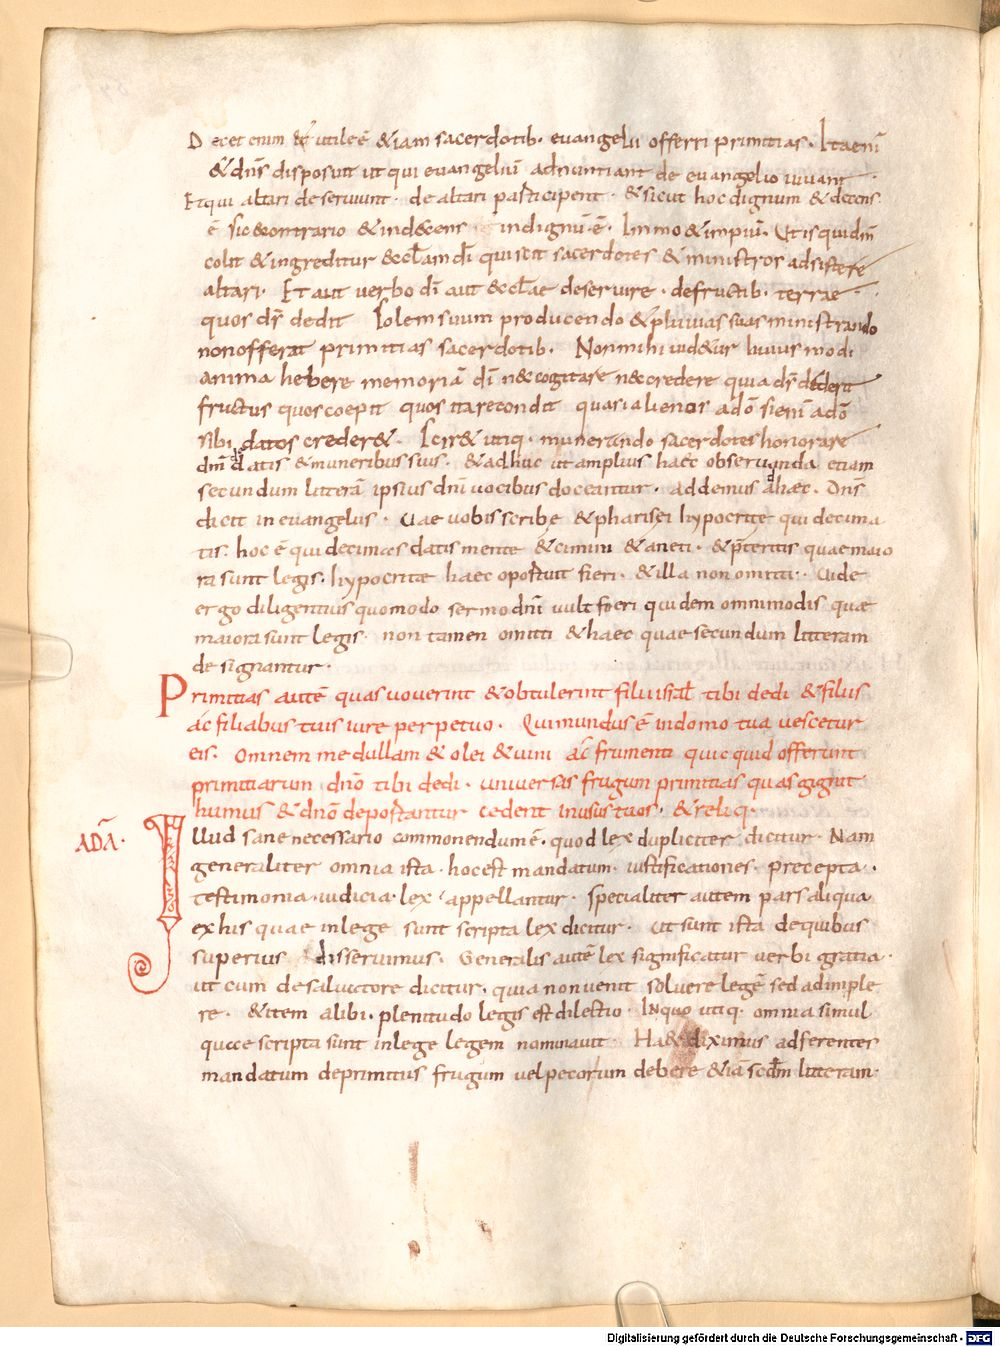 Decet enim & utile ē &iam sacerdotib· evangelii offerri primitias. Ita enī
& dn̄s disposuit ut qui evangeliū adnuntiant de evangelio vivant·
Et qui altari deserviunt· de altari participent· & sicut hoc dignum & decens
ē sic & contrario & indecens indignū ē. Immo & impiū. Ut is qui dm̄
colit & ingreditur & ecl̄am dī qui scit sacerdotes & ministros adsistere
altari· Et aut verbo dī aut ecl̄ae deservire· de fructib· terrae·
quos ds̄ dedit Solem suum producendo & pluvias suas ministrando
non offerat primitias sacerdotib· Non mihi vid&ur huius modi
anima habere memoriā dī nec cogitare nec credere quia ds̄ dederit
fructus quos coepit quos ita recondit quasi alienos a dō si enī a dō
sibi datos creder&. Scir& utiq· munerando sacerdotes honorare
dm̄ de datis & muneribus suis· & adhuc ut amplius haec observanda etiam
secundum litterā ipsius dn̄i vocibus doceantur· addemus ad haec. Dn̄s
dicit in evangelus· Vae vobis scribe & pharisei hypocritę qui decima
tis· hoc ē qui decimas datis mente & cimini & aneti· & p̄teritis quae maio
ra sunt legis· hypocritae haec oportuit fieri· & illa non omitti· Vide
ergo diligentius quomodo sermo dn̄i vult fieri quidem omnimodis quae
maiora sunt legis· non tamen omitti & haec quae secundum litteram
designantur·
Primitias autē quas voverint & obtulerint filii isrl̄ tibi dedi & filiis
ac filiabus tuis iure perpetuo. Qui mundus ē in domo tua vescetur
eis. Omnem medullam & olei & vini ac frumenti quicquid offerunt
primitiarum dn̄o tibi dedi· universas frugum primitias quas gignit
humus & dn̄o deportantur cedent in usus tuos· & reliq·
ADĀ·
Illud sane necessario commonendum ē· quod lex dupliciter dicitur· Nam
generaliter omnia ista· hoc est mandatum· iustificationes· precepta·
testimonia· iudicia· lex appellantur· specialiter autem pars aliqua
ex his quae in lege sunt scripta lex dicitur· ut sunt ista de quibus
superius disseruimus. Generalis autē lex significatur verbi gratia·
ut cum de salvatore dicitur· quia non venit solvere legē sed adimple
re· & item alibi· plenitudo legis est dilectio· In quo utiq· omnia simul
quae scripta sunt in lege legem nominavit· Haec diximus adferentes
mandatum de primitiis frugum vel pecorum debere &iā scdm̄ litteram·
Digitalisierung gefördert durch die Deutsche Forschungsgemeinschaft - DFG